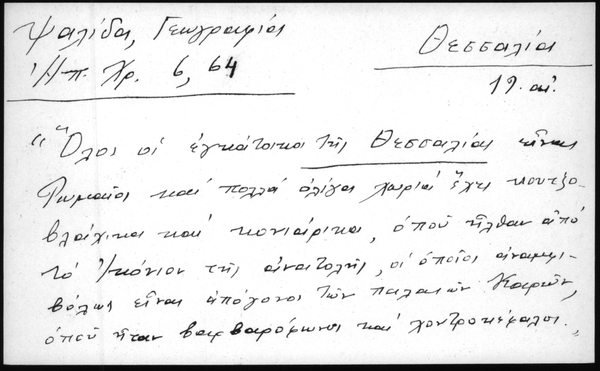 Ψαλίδα, Γεωγραφία
Ἠπ. Χρ. 6, 64
Θεσσαλία
19. αἰ.
"Ὅλοι οἱ ἐγκάτοικοι τῆς Θεσσαλίας εἶναι
Ρωμαῖοι καὶ πολλὰ ὀλίγα χωριὰ ἔχει κουτζο-
βλάχικα καὶ κονιάρικα, ὁποῦ ἦλθαν ἀπὸ
τὸ Ἰκόνιον τῆς ἀνατολῆς, οἱ ὁποῖοι ἀναμφι-
βόλως εἶναι ἀπόγονοι τῶν παλαιῶν Καρῶν,
ὁποῦ ἦταν βαρβαρόφωνοι καὶ χοντροκέφαλοι.